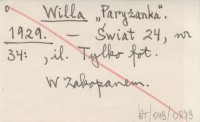 Willa „Paryżanka".
1929. — Świat 24, nr
34: , il. Tylko fot.
W Zakopanem.